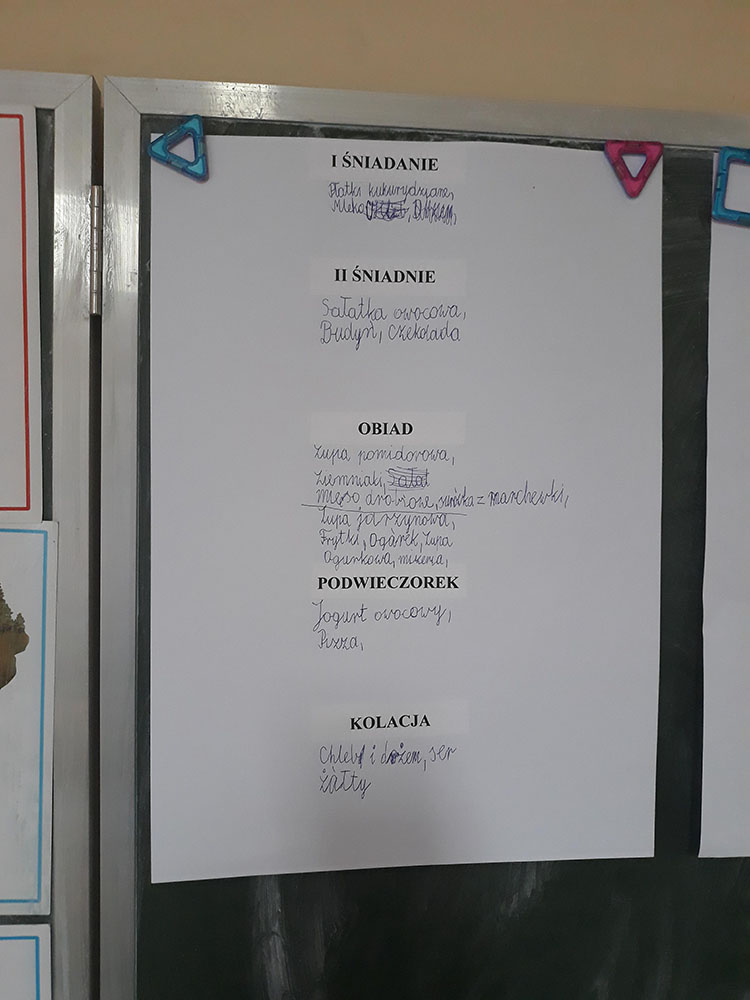 I ŚNIADANIE
Płatki kukurydziane,
Mleko
II ŚNIADNIE
Sałatka owocowa,
Budyń, czekolada
OBIAD
Zupa pomidorowa,
Ziemniaki,
mięso drobiowe, surówka z marchewki,
Zupa jarzynowa,
Frytki, Ogórek, zupa
Ogurkowa, mizeria,
PODWIECZOREK
Jogurt owocowy,
Pizza,
KOLACJA
Chleb i dżem, ser
żółty